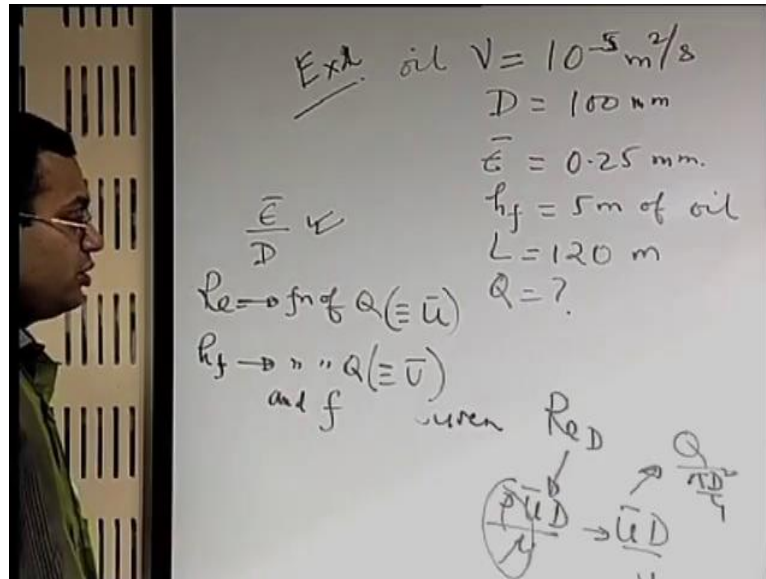 Ex1. oil ν = 10⁻⁵ m²/s
D = 100 mm
ε̄ = 0.25 mm.
h_f = 5m of oil
L = 120 m
Q = ?
ε̄/D ✓
Re → fn of Q (≡ ū)
h_f → " " Q (≡ ū)
and f
Re_D
ρūD/μ → ūD
Q/(πD²/4)